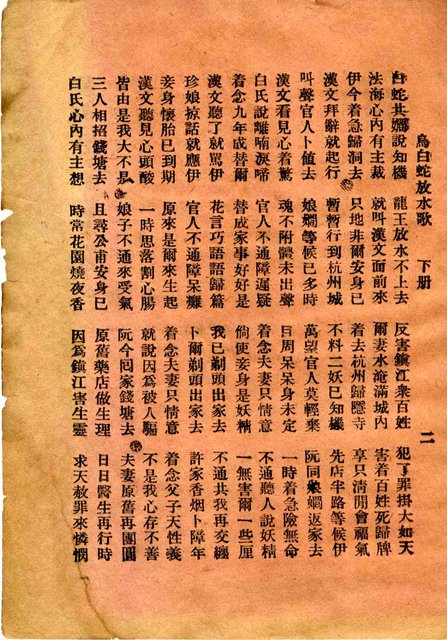 烏白蛇放水歌 下册 二
白蛇共嫺說知機 龍王放水不上去 反害鎮江衆百姓 犯了罪掛大如天
法海心內有主裁 就叫漢文面前來 爾妻水淹滿城內 害着百姓死歸牌
伊今着急歸洞去 只地非爾安身已 着去杭州歸隱寺 享只清閒會福氣
漢文拜辭就起行 暫暫行到杭州城 不料二妖已知機 先店半路等候伊
叫聲官人卜値去 娘嫺等候已多時 萬望官人莫輕棄 阮同娘嫺返家去
漢文看見心着驚 魂不附體未出聲 目周呆呆身未定 一時着急險無命
白氏說離喃淚啼 官人不通障遲疑 着念夫妻只情意 不通聽人說妖精
着念九年成替爾 替成家事好好是 倘使妾身是妖精 一無害爾一些厘
漢文聽了就罵伊 花言巧語語歸篇 我已剃頭出家去 不通共我再交纏
珍娘掠話就應伊 官人不通障呆癡 卜爾剃頭出家去 許家香烟卜障年
妾身懷胎已到期 原來是爾來生起 着念夫妻只情意 着念父子天性義
漢文聽見心頭酸 一時思落割心腸 就說因爲被人騙 不是我心存不善
皆由是我大不是 娘子不通來受氣 阮今回家錢塘去 夫妻原舊再團圓
三人相招錢塘去 且尋公甫安身已 原舊藥店做生理 日日醫生再行時
白氏心內有主想 時常花園燒夜香 因爲鎮江害生靈 求天赦罪來憐憫